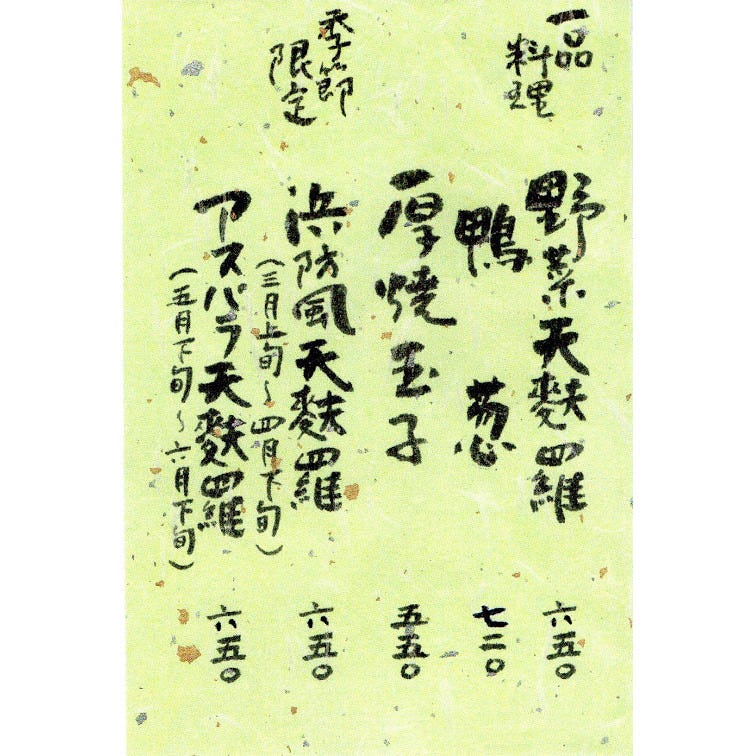 一品
料理
野菜天麩羅
六五〇
鴨葱
七二〇
厚焼玉子
五五〇
季節
限定
浜防風天麩羅
(三月上旬~四月下旬)
六五〇
アスパラ天麩羅
(五月下旬~六月下旬)
六五〇